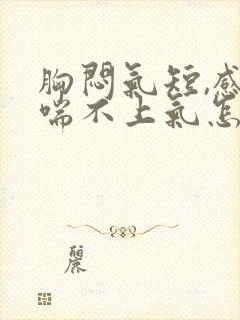 胸悶氣短,感
喘不上氣怎
麗